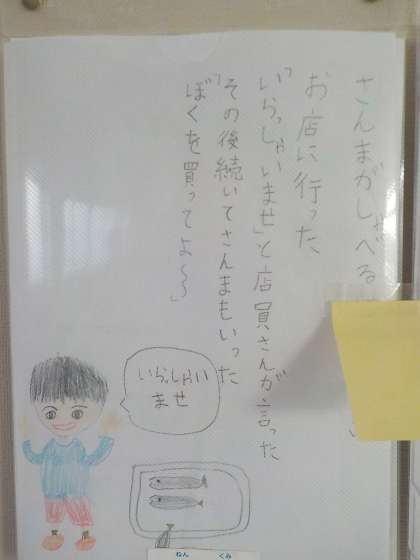 さんまがしゃべる
お店に行った
「いらっしゃいませ」と店員さんが言った
その後続いてさんまもいった
「ぼくを買ってよ～」
いらっしゃい
ませ
ねん くみ